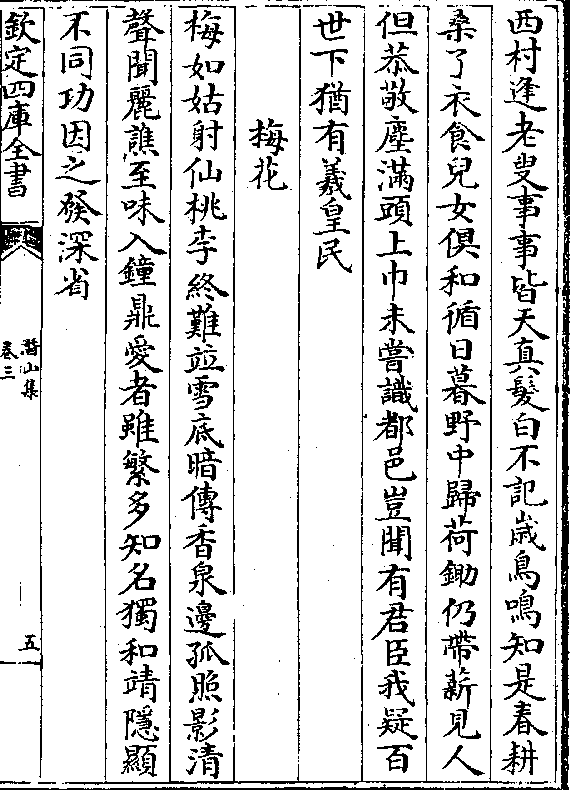 西村逢老叟事事皆天真髮白不記歲鳥鳴知是春耕
桑了衣食兒女俱和循日暮野中歸荷鋤仍帶薪見人
但恭敬塵滿頭上巾未嘗識都邑豈聞有君臣我疑百
世下猶有羲皇民
梅花
梅如姑射仙桃李終難竝雪底暗傳香泉邊孤照影清
聲聞麗譙至味入鐘鼎愛者雖繁多知名獨和靖隱顯
不同功因之發深省
欽定四庫全書
潛山集
卷三
五